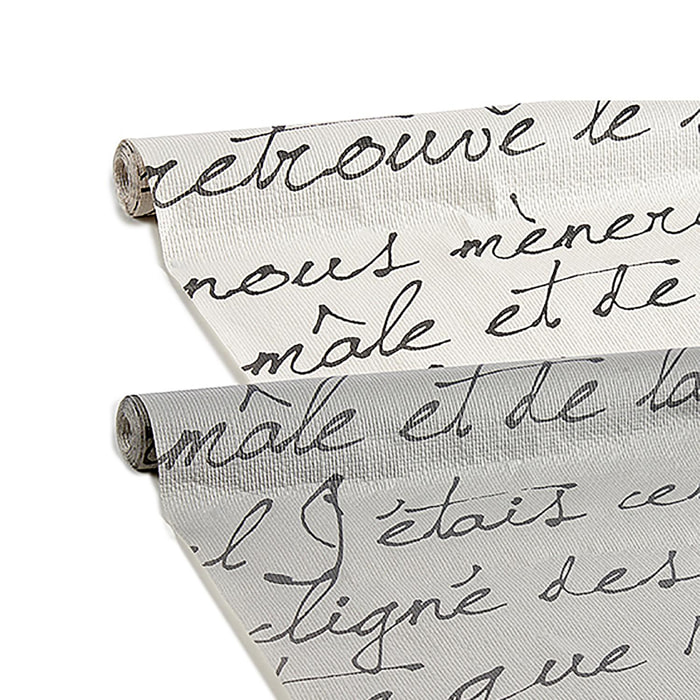 retrouvè le
nous mèner
mâle et de
mâle et de la
l J'étais ce
cligné des
que